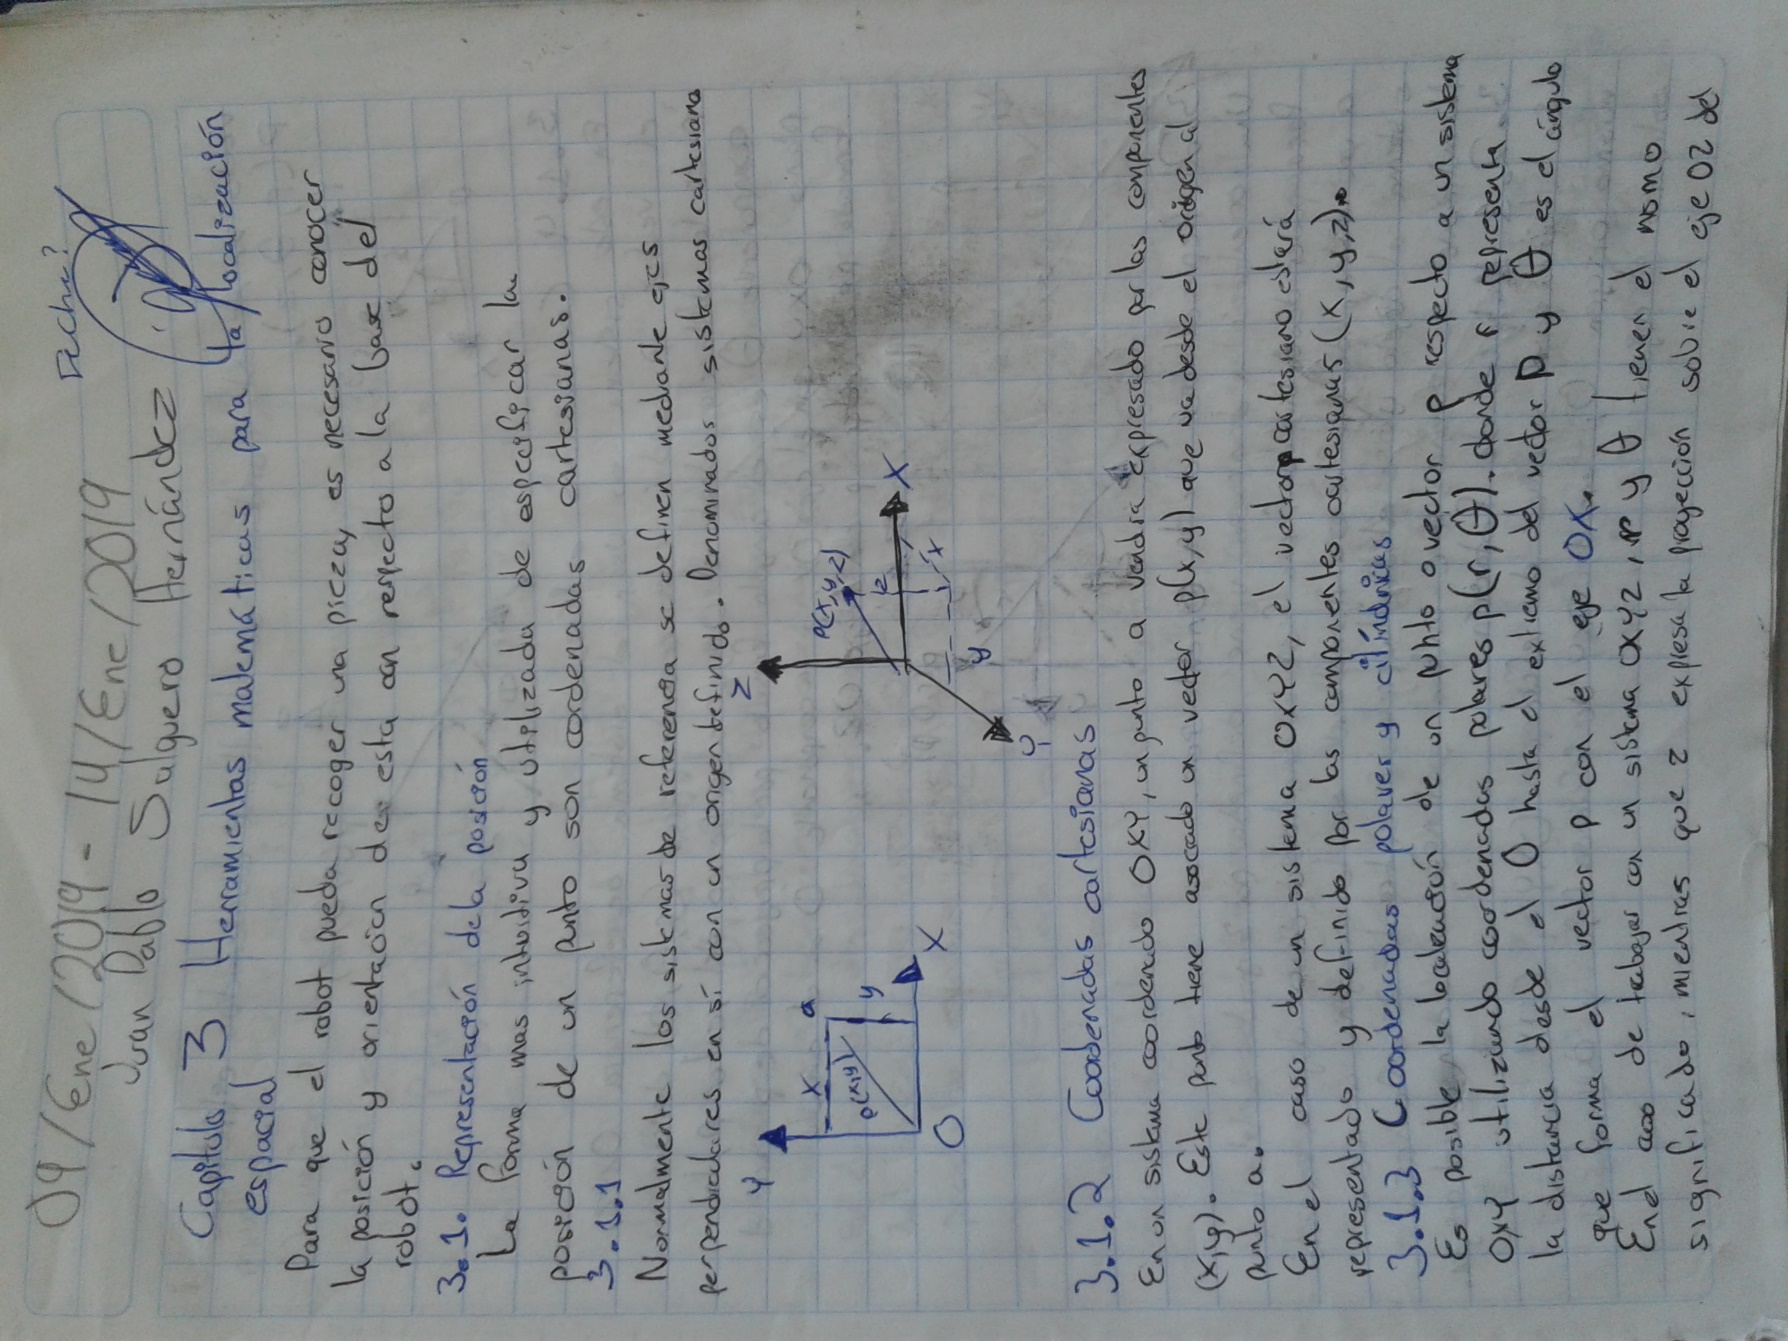 09/Ene/2019 - 14/Ene/2019
Fecha?
Juan Pablo Salguero Hernández
Capitulo 3 Herramientas matemáticas para la localización
espacial
Para que el robot pueda recoger una pieza, es necesario conocer
la posición y orientación de esta con respecto a la base del
robot.
3.1. Representación de la posición
La forma mas intuitiva y utilizada de especificar la
posición de un punto son cordenadas cartesianas.
3.1.1
Normalmente los sistemas de referencia se definen mediante ejes
perpendiculares en sí con un origen definido. Denominados sistemas cartesianos
Y
X
a
p(x,y)
y
O
X
Z
P(x,y,z)
z
X
x
y
Y
3.1.2 Coordenadas cartesianas
En un sistema coordenado OXY, un punto a vendra expresado por las componentes
(x,y). Este punto tiene asociado un vector p(x,y) que va desde el origen al
punto a.
En el caso de un sistema OXYZ, el vector p cartesiano estará
representado y definido por las componentes cartesianas (x,y,z).
3.1.3 Coordenadas polares y cilíndricas
Es posible la localización de un punto o vector p respecto a un sistema
OXY utilizando coordenadas polares p(r,θ). donde r representa
la distancia desde el O hasta el extremo del vector p y θ es el ángulo
que forma el vector p con el eje OX.
En el caso de trabajar con un sistema OXYZ, r y θ tienen el mismo
significado, mientras que z expresa la proyección sobre el eje OZ del